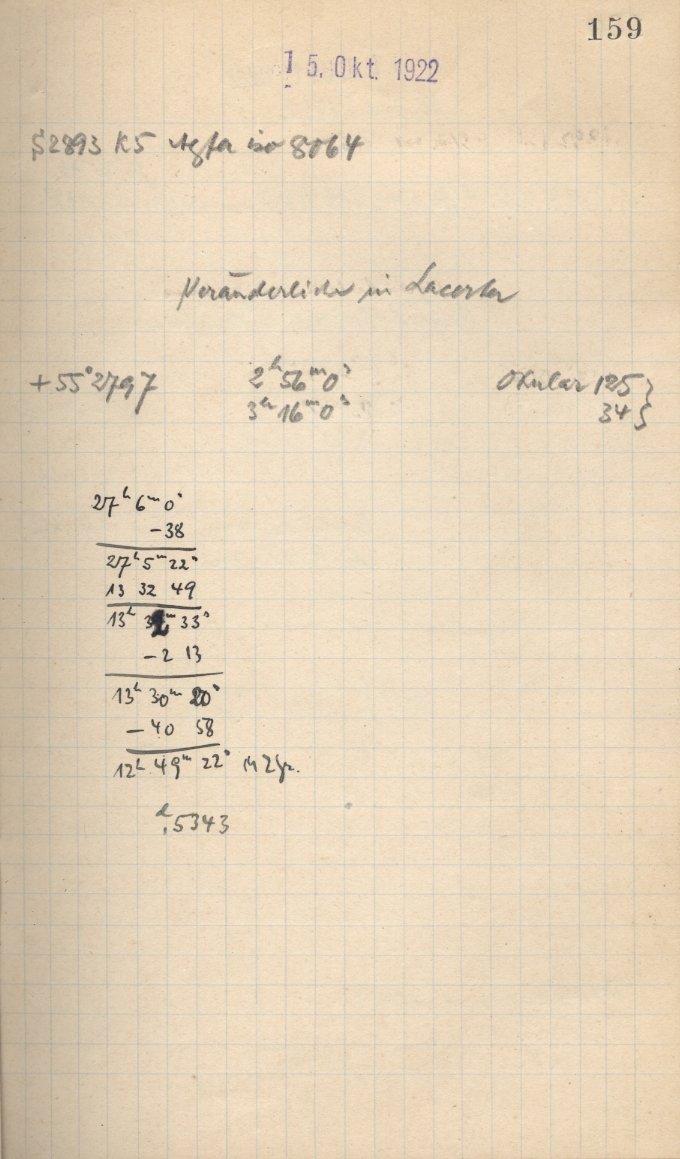 159
15. Okt. 1922
S2893 K5 Agfa iso 8064
Veränderliche in Lacerta
+55°2797 2ʰ56ᵐ0ˢ Okular 125
3ʰ16ᵐ0ˢ 34
27ʰ 6ᵐ 0ˢ
-38
27ʰ 5ᵐ 22ˢ
13 32 49
13ʰ 32ᵐ 33ˢ
-2 13
13ʰ 30ᵐ 20ˢ
-40 58
12ʰ 49ᵐ 22ˢ MZGr.
ᵈ.5343